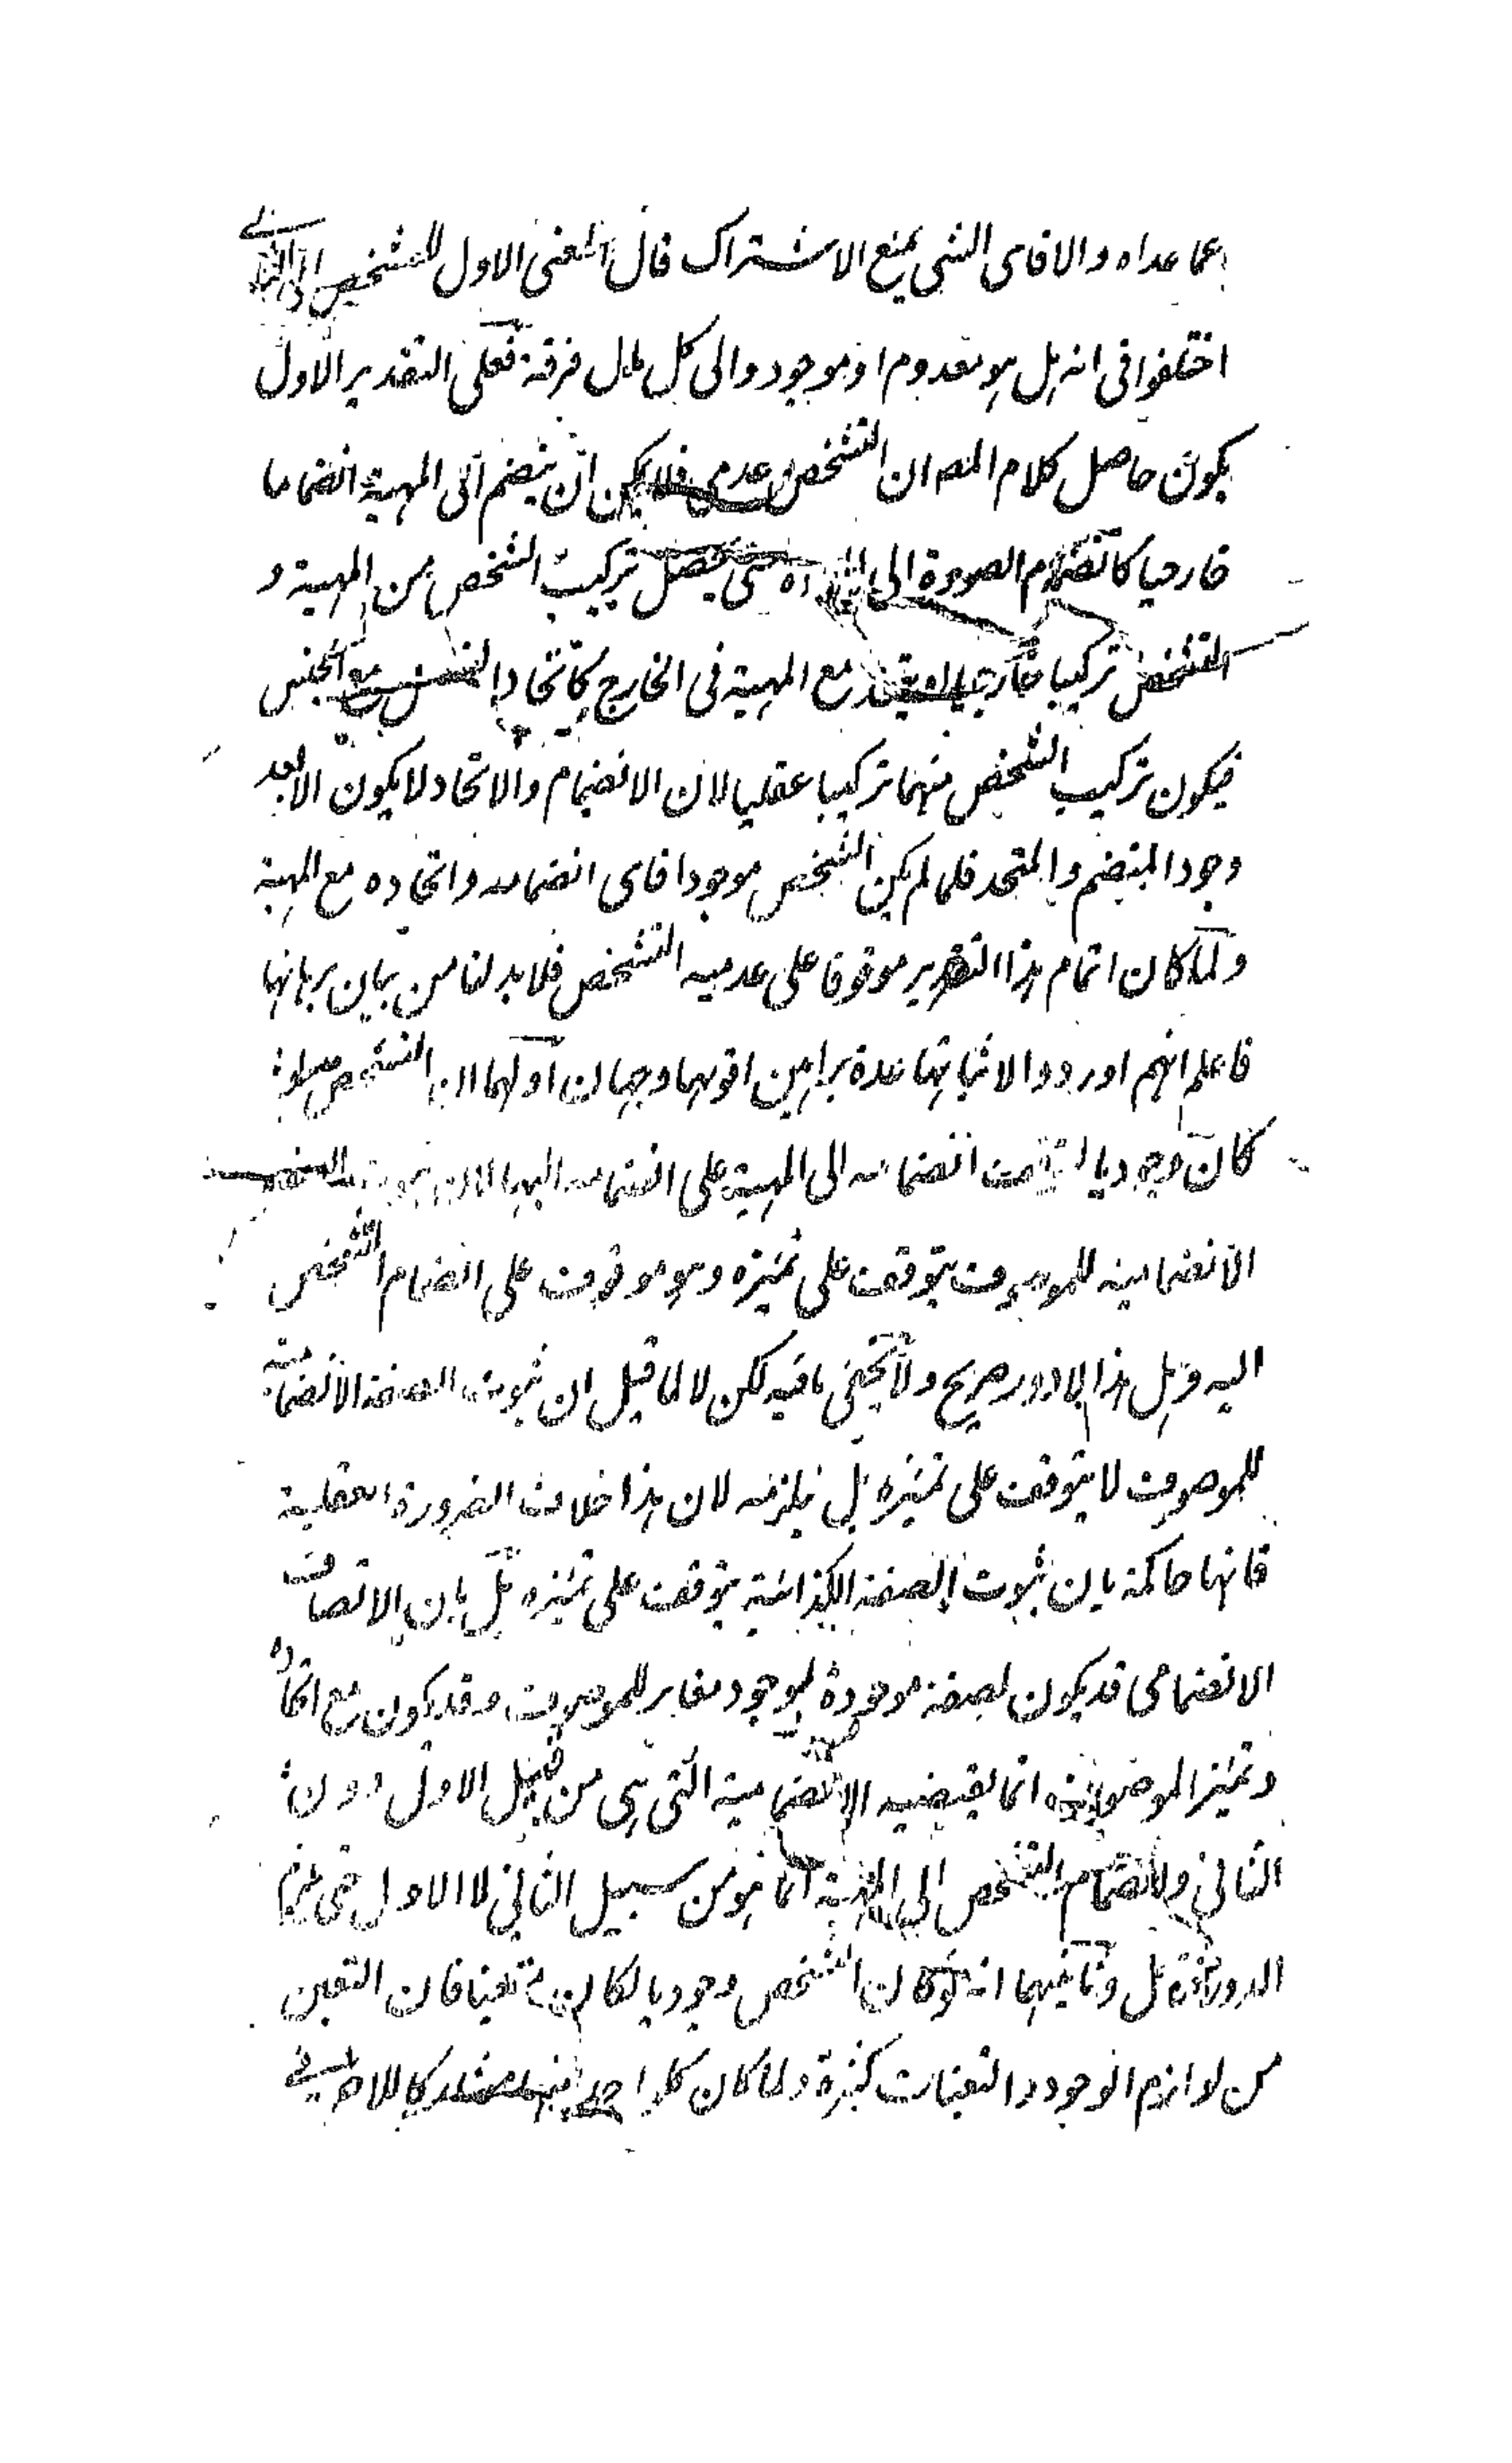 عما عداه والا فاى الشى يمنع الاشتراك قال المعنى الاول للتشخص
اختلفوا فى انه هل هو معدوم او موجود والى كل مال فرقة فعلى التقدير الاول
يكون حاصل كلام المصـ ان التشخص عدمى فلا يمكن ان ينضم الى المهية انضماما
خارجيا كانضمام الصورة الى حتى يحصل تركيب الشخص من المهية و
التشخص تركيبا خارجيا مع المهية فى الخارج كاتحاد الفصل مع الجنس
فيكون تركيب الشخص منهما تركيبا عقليا لان الانضمام والاتحاد لا يكون الا بعد
وجود المنضم والمتحد فلما لم يكن التشخص موجودا فاى انضمامه واتحاده مع المهية
ولما كان اتمام هذا التقدير موقوفا على عدمية التشخص فلا بد لنا من بيان برهانها
فاعلم انهم اوردوا لاثباتها عدة براهين اقويهما وجهان اولهما ان التشخص لو
كان وجوديا انضمامه الى المهية على انضمامه اليها لان
الانضمامية للموصوف يتوقف على تميزه وهو موقوف على انضمام التشخص
اليه وهل هذا الا دور صريح ولا يخفى ما فيه لكن لا لما قيل ان ثبوت الصفة الانضمامية
للموصوف لا يتوقف على تميزه بل يلزمه لان هذا خلاف الضرورة العقلية
فانها حاكمة بان ثبوت الصفة الكذائية يتوقف على تميزه بل بان الاتصاف
الانضمامى قد يكون لصفة موجودة بوجود مغاير للموصوف وقد يكون مع اتحاده
وتميز الموصوف انما يقتضيه الانضمامية التى هى من قبيل الاول دون
الثانى وانضمام التشخص الى المهية انما هو من سبيل الثانى لا الاول حتى يلزم
الدور وثانيهما انه لو كان التشخص وجوديا لكان متعينا فان التعين
من لوازم الوجود والتعينات كثيرة ولما كان كل واحد منها مشاركا للاخر فى